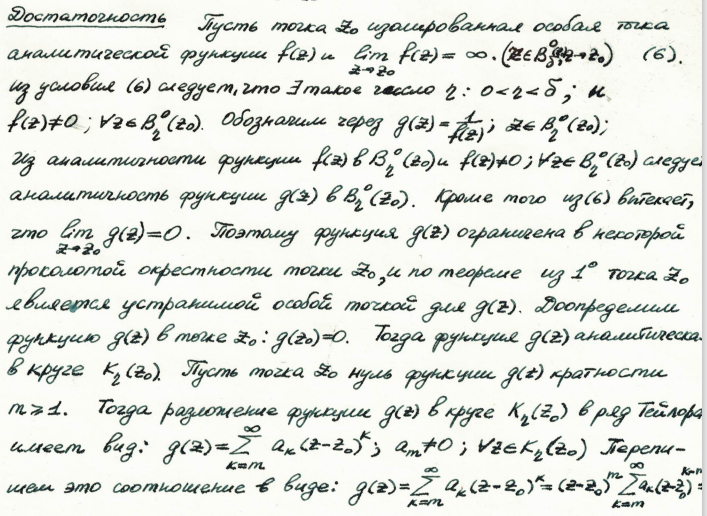 Достаточность Пусть точка z₀ изолированная особая точка
аналитической функции f(z) и lim_{z→z₀} f(z) = ∞. (z∈B_δ⁰; z→z₀) (6).
из условия (6) следует, что ∃ такое число η: 0<η<δ; и
f(z)≠0; ∀z∈B_η⁰(z₀). Обозначим через g(z)=1/f(z); z∈B_η⁰(z₀);
Из аналитичности функции f(z) в B_η⁰(z₀) и f(z)≠0; ∀z∈B_η⁰(z₀) следуе
аналитичность функции g(z) в B_η⁰(z₀). Кроме того из (6) вытекает,
что lim_{z→z₀} g(z)=0. Поэтому функция g(z) ограничена в некоторой
проколотой окрестности точки z₀, и по теореме из 1⁰ точка z₀
является устранимой особой точкой для g(z). Доопределим
функцию g(z) в точке z₀: g(z₀)=0. Тогда функция g(z) аналитическа
в круге K_η(z₀). Пусть точка z₀ нуль функции g(z) кратности
m⩾1. Тогда разложение функции g(z) в круге K_η(z₀) в ряд Тейлора
имеет вид: g(z)=∑_{k=m}^∞ a_k(z-z₀)^k; a_m≠0; ∀z∈K_η(z₀) Перепи-
шем это соотношение в виде: g(z)=∑_{k=m}^∞ a_k(z-z₀)^k=(z-z₀)^m ∑_{k=m}^∞ a_k(z-z₀)^{k-m}=